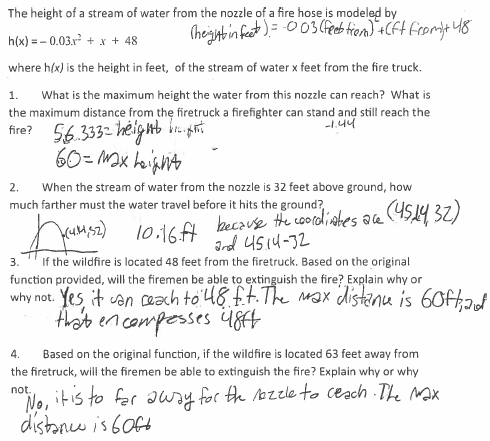 The height of a stream of water from the nozzle of a fire hose is modeled by
h(x) = – 0.03x² + x + 48
(height in feet) = -0.03(feet from)² + (ft from) + 48
where h(x) is the height in feet, of the stream of water x feet from the fire truck.
1. What is the maximum height the water from this nozzle can reach? What is
the maximum distance from the firetruck a firefighter can stand and still reach the
fire? 56.333 = height
-1.44
60 = max height
2. When the stream of water from the nozzle is 32 feet above ground, how
much farther must the water travel before it hits the ground?
10.16 ft because the coordinates are (45.14, 32)
and 45.14-32
3. If the wildfire is located 48 feet from the firetruck. Based on the original
function provided, will the firemen be able to extinguish the fire? Explain why or
why not. Yes, it can reach to 48 f.t. The max distance is 60ft, and
that encompesses 48ft
4. Based on the original function, if the wildfire is located 63 feet away from
the firetruck, will the firemen be able to extinguish the fire? Explain why or why
not. No, it is to far away for the nozzle to reach. The max
distance is 60ft